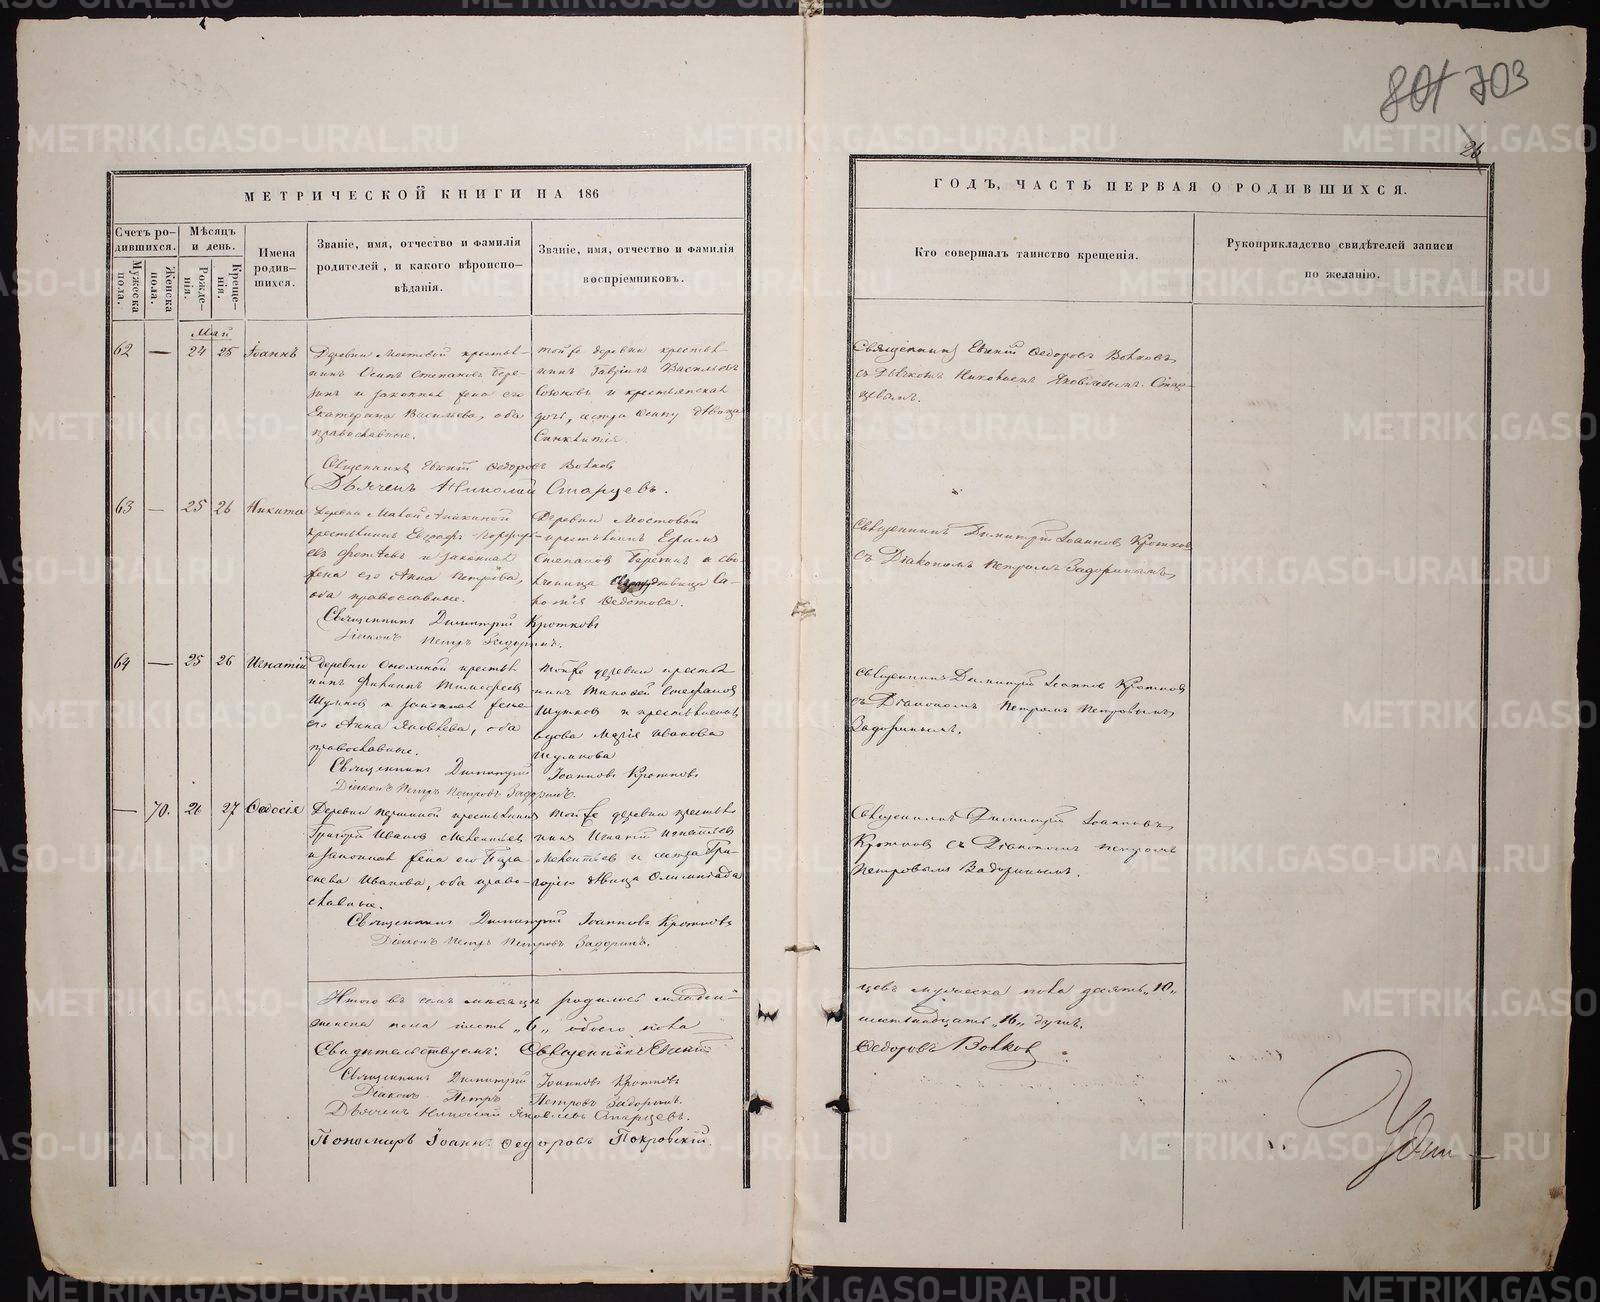 801 703
26
МЕТРИЧЕСКОЙ КНИГИ НА 186
ГОДЪ, ЧАСТЬ ПЕРВАЯ О РОДИВШИХСЯ.
Счетъ ро-
дившихся.
Мужеска пола.
Женска пола.
Мѣсяцъ
и день.
Рожде-
нія.
Креще-
нія.
Имена
родив-
шихся.
Званіе, имя, отчество и фамилія
родителей, и какого вѣроиспо-
вѣданія.
Званіе, имя, отчество и фамилія
воспріемниковъ.
Кто совершалъ таинство крещенія.
Рукоприкладство свидѣтелей записи
по желанію.
Май
62 — 24 25 Іоаннъ
Деревни Мостовой крестья-
нинъ Осипъ Степановъ Бере-
зинъ и законная жена его
Екатерина Васильева, оба
православные.
Тойже деревни крестья
нинъ Гавріилъ Васильевъ
и крестьянская
дочь, сестра Осипу дѣвица
Синклитія.
Священникъ Евгеній Федоровъ Волковъ
съ Дьячкомъ Николаемъ Яковлевымъ Стар-
цевымъ.
Священникъ Евгеній Федоровъ Волковъ
Дьячекъ Николай Старцевъ.
63 — 25 26 Никита
Деревни Малой
крестьянинъ Евграфъ
и законная
жена его Анна Петрова,
оба православные.
Деревни Мостовой
крестьянинъ Ефимъ
Степановъ Березинъ и
дѣвица
Федотова.
Священникъ Димитрій Іоанновъ Кротковъ
съ Діакономъ Петромъ Задоринымъ
Священникъ Димитрій Кротковъ
Діаконъ Петръ Задоринъ.
64 — 25 26 Игнатій
Деревни крестья
нинъ Филипъ Тимофеевъ
и законная жена
его Анна Яковлева, оба
православные.
Тойже деревни крестья
нинъ Тимофей Стефановъ
и крестьянская
вдова Марія Иванова
Священникъ Димитрій Іоанновъ Кротковъ
съ Діакономъ Петромъ Петровымъ
Задоринымъ.
Священникъ Димитрій Іоанновъ Кротковъ
Діаконъ Петръ Петровъ Задоринъ.
— 70. 26 27 Феодосія
Деревни Першиной крестьянинъ
Григорій Ивановъ Мекентьевъ
и законная жена его Пара-
скева Иванова, оба право-
славные.
Тойже деревни крестья
нинъ Игнатій Игнатьевъ
Мекентьевъ и сестра Гри-
горію дѣвица Олимпіада
Священникъ Димитрій Іоанновъ
Кротковъ съ Діакономъ Петромъ
Петровымъ Задоринымъ.
Священникъ Димитрій Іоанновъ Кротковъ
Діаконъ Петръ Петровъ Задоринъ.
Итого въ семъ мѣсяцѣ родилось младен-
цевъ мужеска пола десять „10„
женска пола шесть „6„ обоего пола
шестнадцать „16„ душъ.
Свидѣтельствуемъ: Священникъ Евгеній
Федоровъ Волковъ
Священникъ Димитрій Іоанновъ Кротковъ
Діаконъ Петръ Петровъ Задоринъ.
Дьячекъ Николай Яковлевъ Старцевъ.
Пономарь Іоаннъ Федоровъ Покровскій.
METRIKI.GASO-URAL.RU